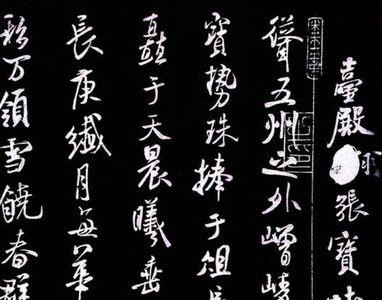 臺殿張寶
聳五州之外嶒
寶勢珠捧于俎
矗于天晨曦垂
長庚纖月每華
移万領雪饒春群